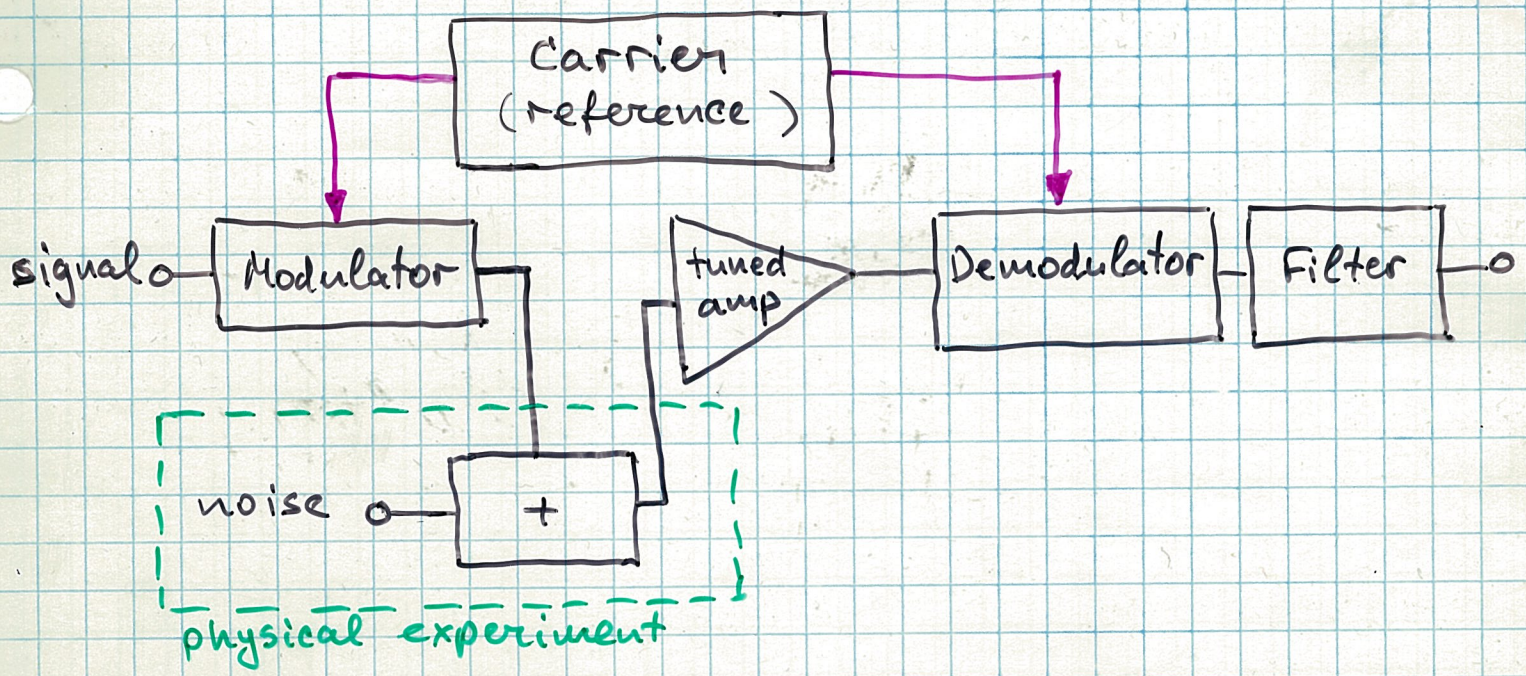 Carrier
(reference)
signal
Modulator
tuned
amp
Demodulator
Filter
noise
+
physical experiment